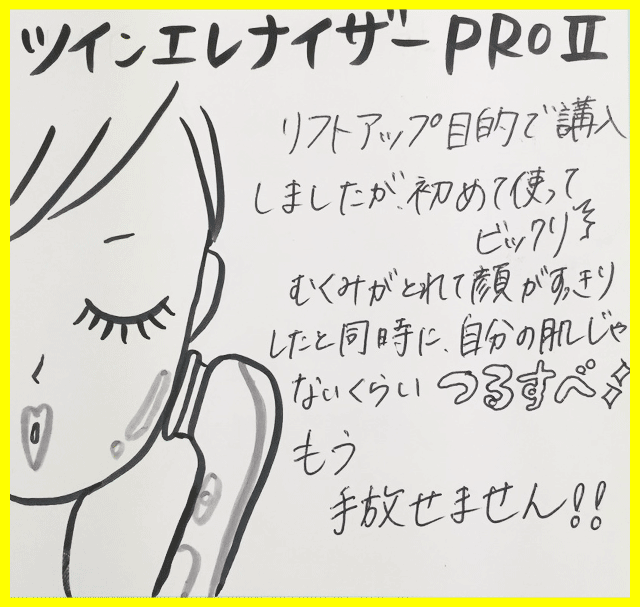 ツインエレナイザーPRO II
リフトアップ目的で講入
しましたが、初めて使って
ビックリ
むくみがとれて顔がすっきり
したと同時に、自分の肌じゃ
ないくらい つるすべ
もう
手放せません!!